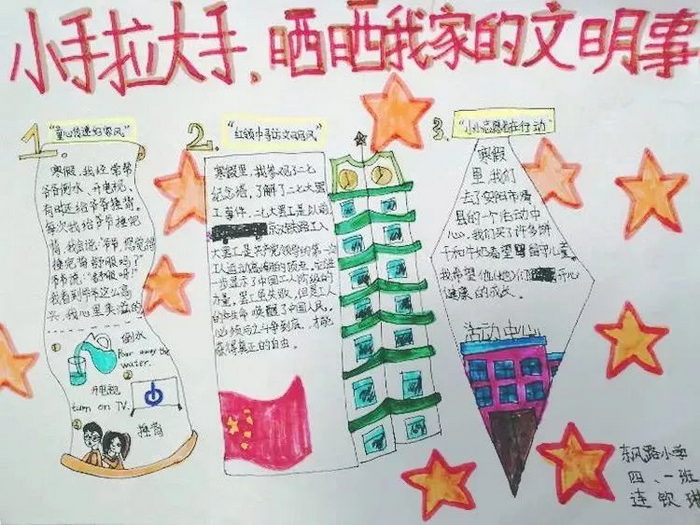 小手拉大手，晒晒我家的文明事
1.
"童心传递好家风"
寒假，我经常帮
爷爷倒水、开电视、
有时还给爷爷捶背。
每次我给爷爷捶完
背，我会说："爷爷，您觉得
捶完背舒服吗？"
爷爷说："舒服呀！"
我看到爷爷这么高
兴，我心里美滋滋
① 倒水
Pour away the
water.
② 开电视
turn on TV.
③ 捶背
2.
"红领巾寻访文明风"
寒假里，我参观了二七
纪念塔，了解了二七大罢
工事件，二七大罢工是以
京汉铁路工人
大罢工是共产党领导的第一次
工人运动高潮的顶点，它进一
步显示了中国工人阶级的
力量，罢工虽失败，但是工人
的生命唤醒了中国人民，
心倾向与斗争到底，才能
获得真正的自由。
3.
"小小志愿者在行动"
寒假
里，我们
去了安阳市滑
县的一个活动中
心，我们买了许多饼
干和牛奶看望留守儿童。
我希望他(她)们开心
健康的成长。
活动中心
东风路小学
四、一班
连钦琳